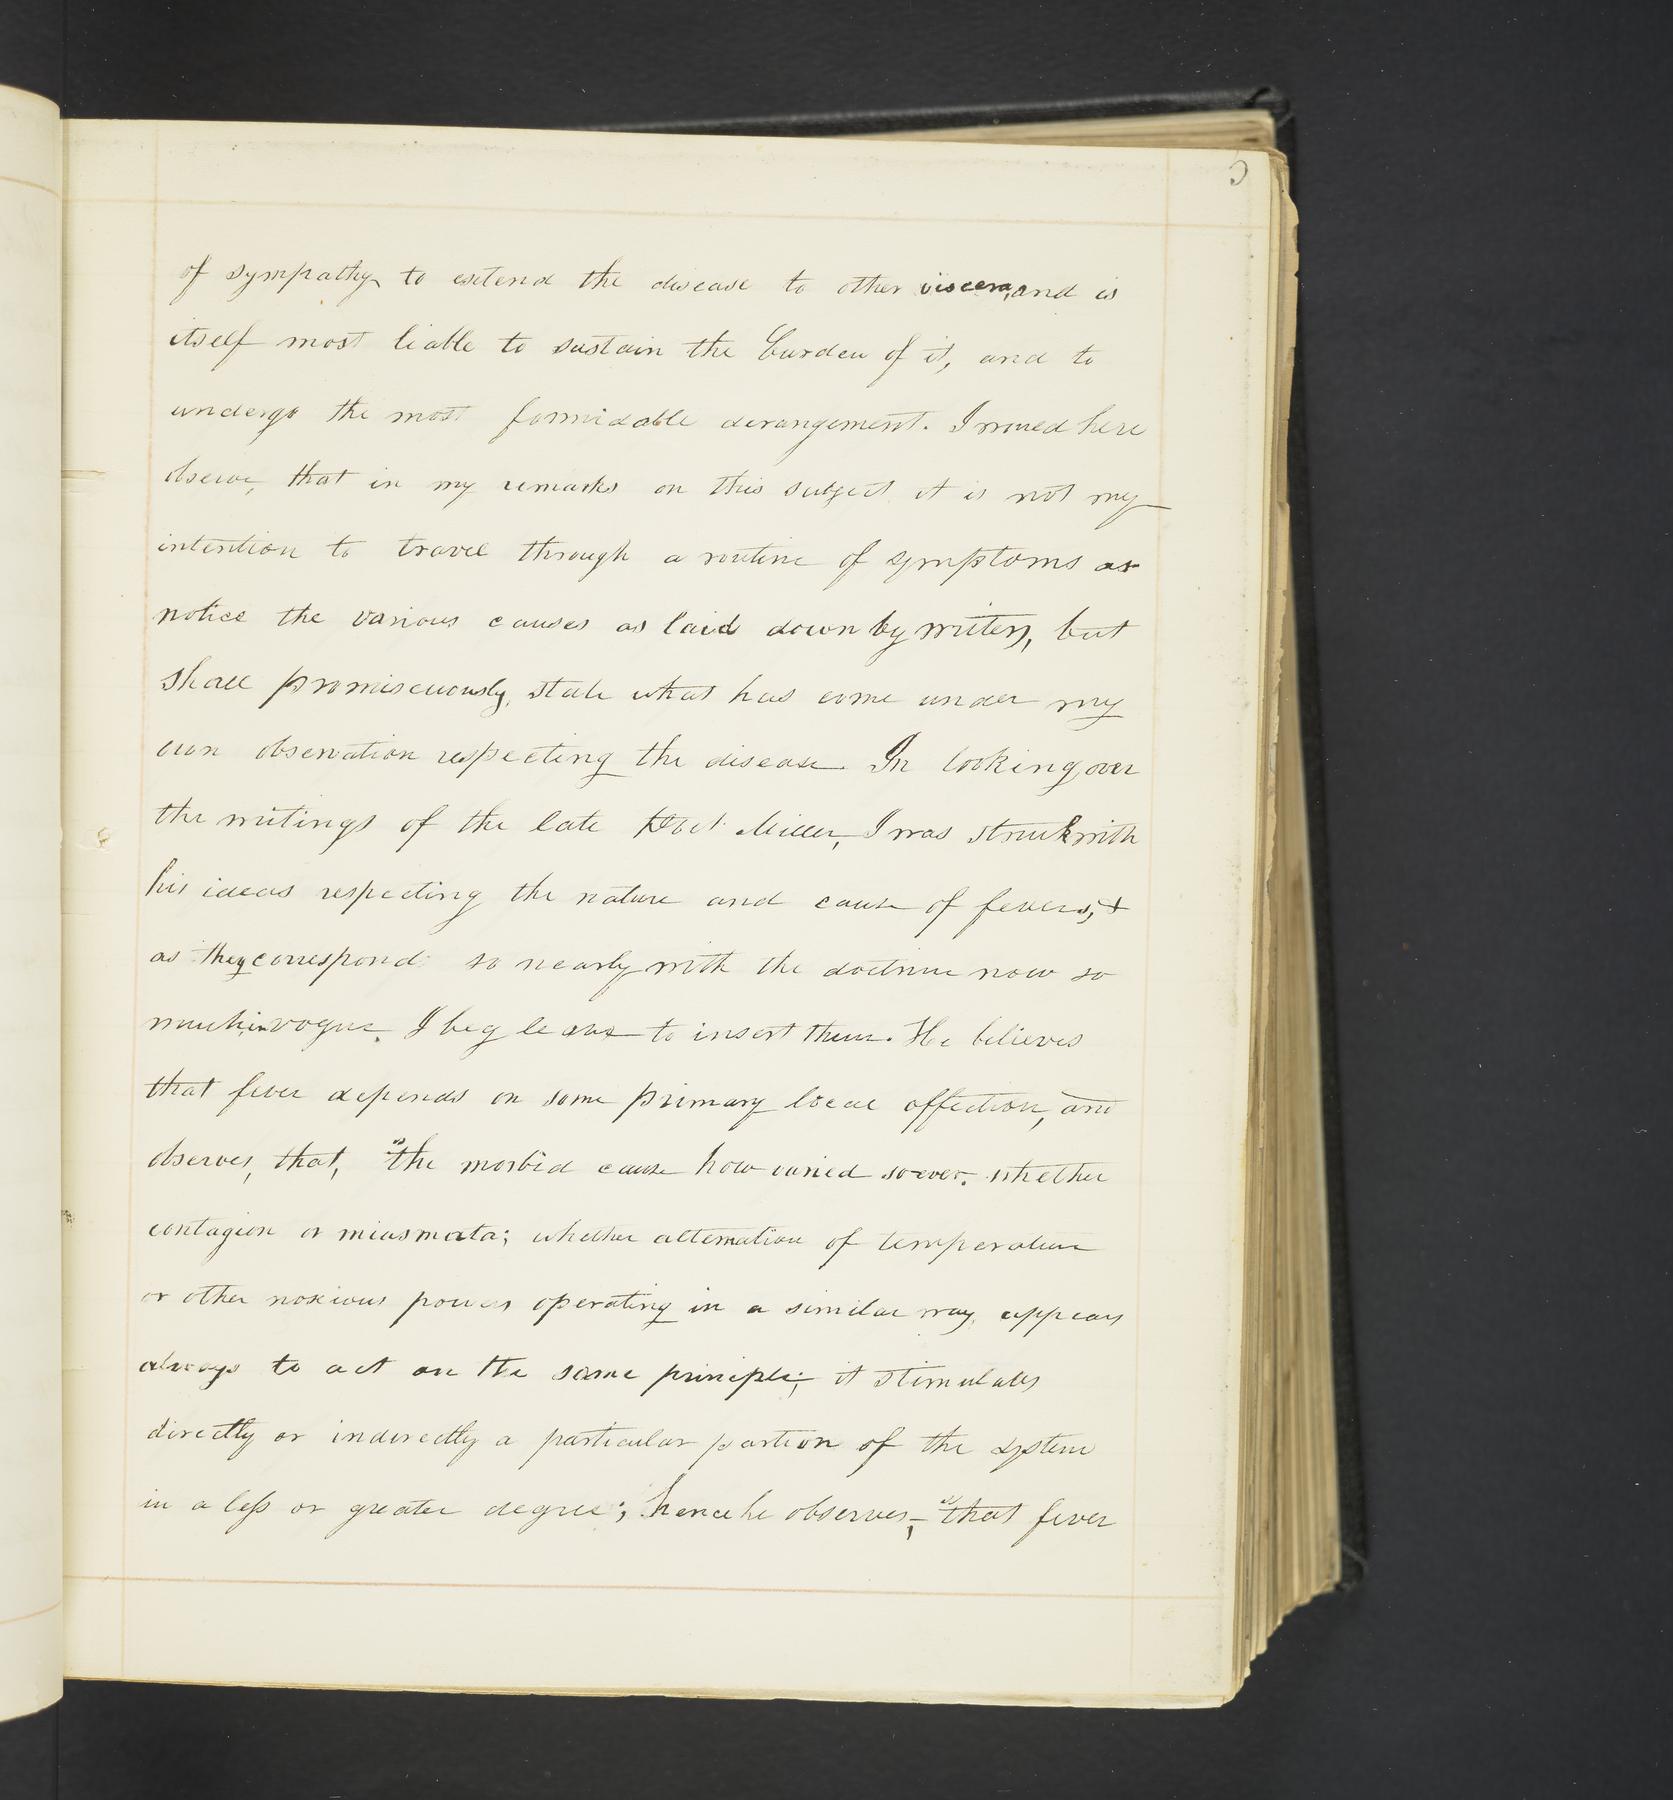 5
of sympathy to extend the disease to other viscera, and is
itself most liable to sustain the burden of it, and to
undergo the most formidable derangement. I would here
observe, that in my remarks on this subject it is not my
intention to travel through a routine of symptoms or
notice the various causes as laid down by writers, but
shall promiscuously, state what has come under my
own observation respecting the disease. In looking over
the writings of the late Doct. Miller, I was struck with
his ideas respecting the nature and cause of fevers, &
as they correspond so nearly with the doctrine now so
much in vogue. I beg leave to insert them. He believes
that fever depends on some primary local affection, and
observes, that, "the morbid cause how varied soever. whether
contagion or miasmata; whether alternation of temperature
or other noxious powers operating in a similar way, appears
always to act on the same principle; it stimulates
directly or indirectly a particular portion of the system
in a less or greater degree; hence he observes, "that fever